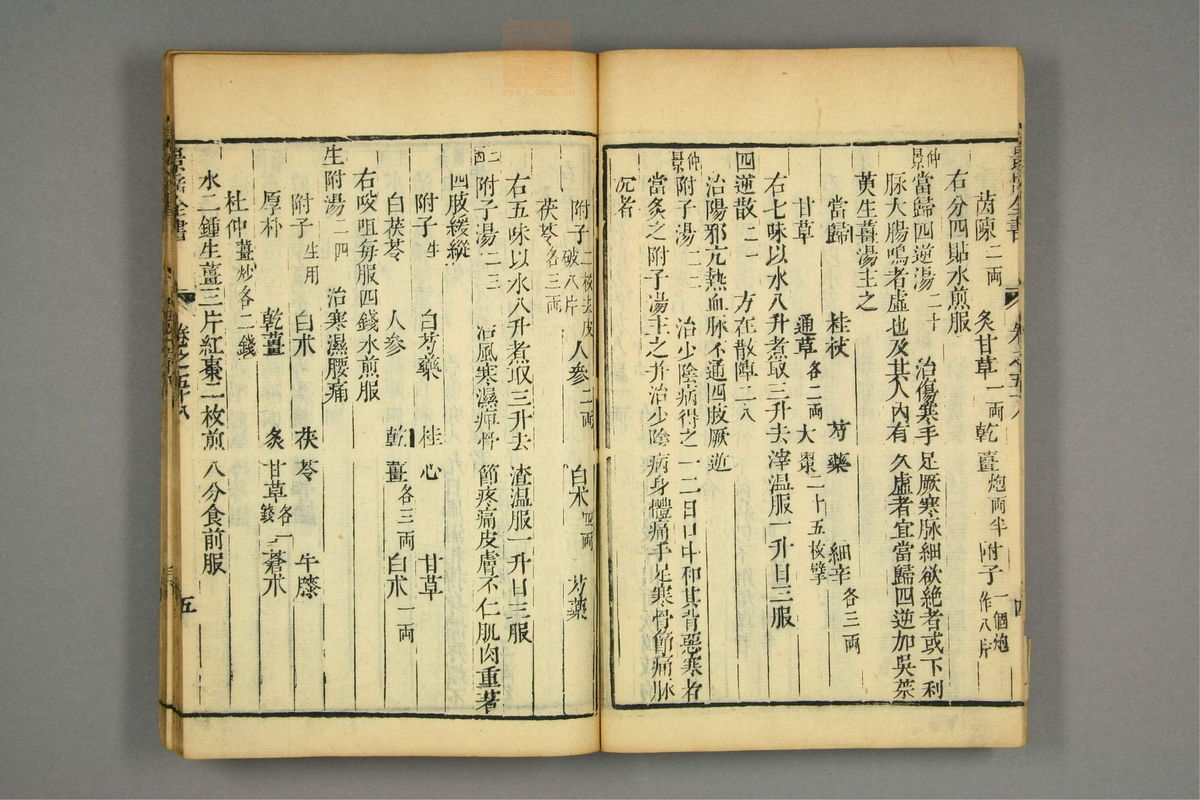 茵陳二兩 炙甘草一兩 乾薑炮兩半 附子一個炮作八片
右分四貼水煎服
仲景當歸四逆湯二十 治傷寒手足厥寒脉細欲絶者或下利
脉大腸鳴者虛也及其人內有久虛者宜當歸四逆加吳茱
萸生薑湯主之
當歸 桂枝 芍藥 細辛各三兩
甘草 通草各二兩 大棗二十五枚擘
右七味以水八升煮取三升去滓温服一升日三服
四逆散二一 方在散陣二八
治陽邪亢熱血脉不通四肢厥逆
仲景附子湯二二 治少陰病得之一二日口中和其背惡寒者
當炙之附子湯主之并治少陰病身體痛手足寒骨節痛脉
沉者
附子二枚去皮破八片 人參二兩 白朮四兩 芍藥
茯苓各三兩
右五味以水八升煮取三升去渣温服一升日三服
附子湯二三 治風寒濕痺骨節疼痛皮膚不仁肌肉重著
四肢緩縱
附子生 白芍藥 桂心 甘草
白茯苓 人參 乾薑各三兩 白朮一兩
右㕮咀每服四錢水煎服
生附湯二四 治寒濕腰痛
附子生用 白朮 茯苓 牛膝
厚朴 乾薑 炙甘草各一錢 蒼朮
杜仲薑炒各二錢
水二鍾生薑三片紅棗二枚煎八分食前服
景岳全書
卷之五十八
五